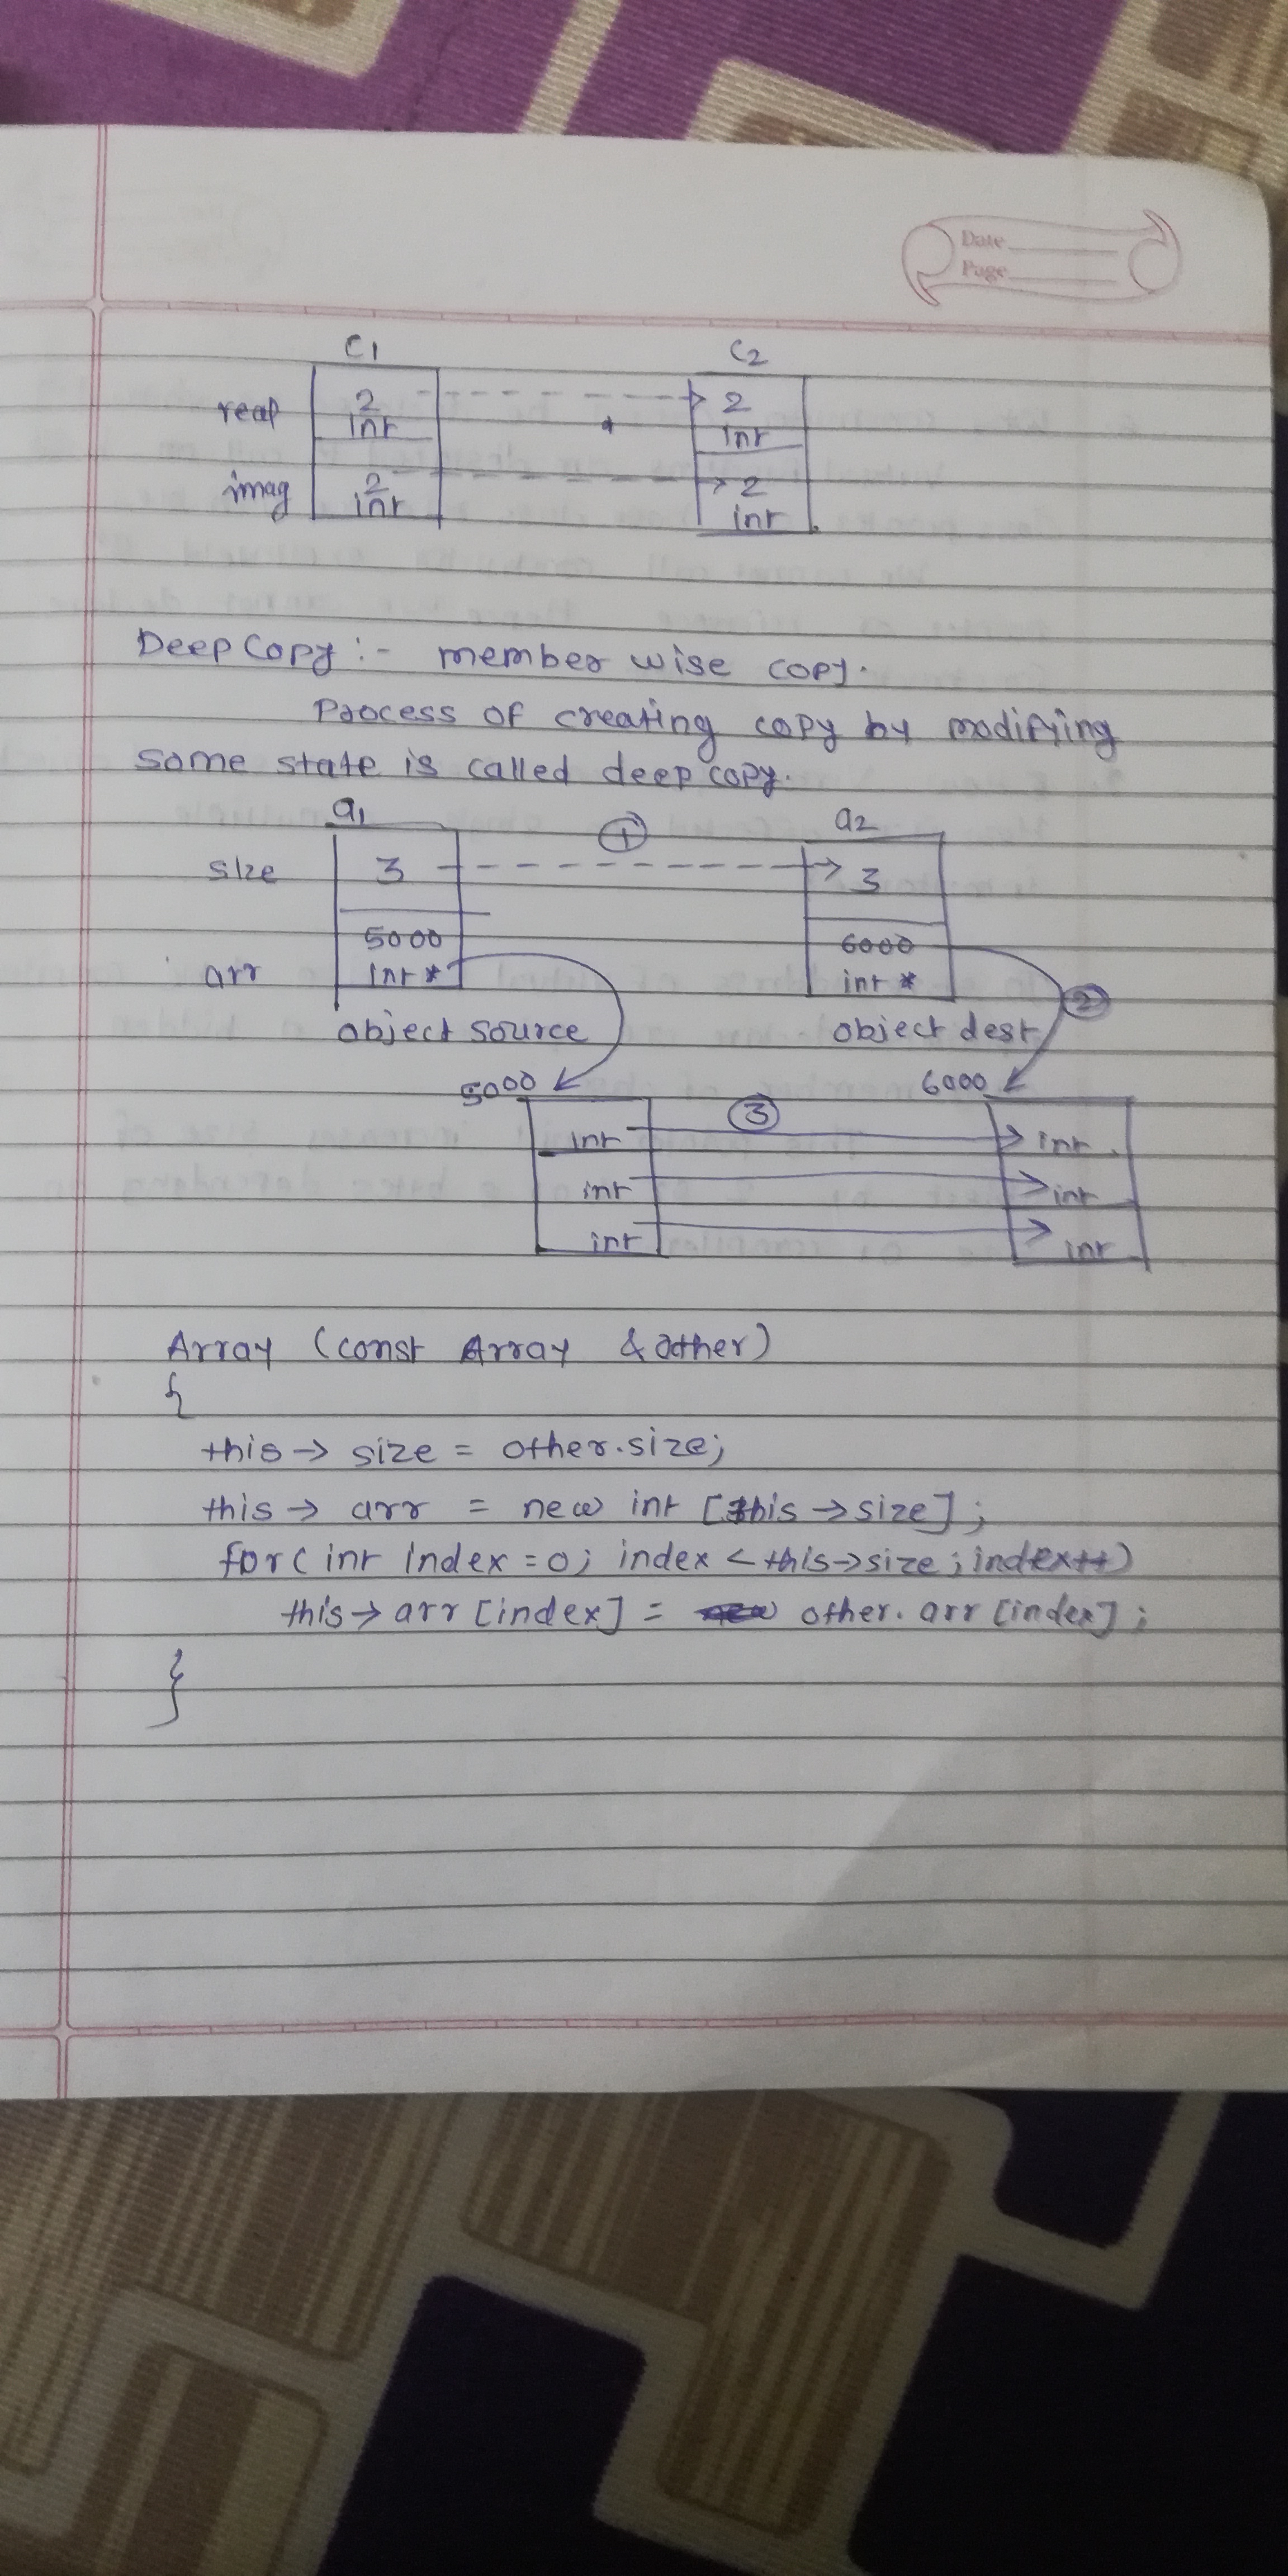 Date
Page
C1 C2
real 2 int 2 int
imag 2 int 2 int
Deep Copy :- member wise copy.
Process of creating copy by modifying
some state is called deep copy.
a1 ① a2
size 3 3
5000 6000
arr int * int * ②
object source object dest
5000 6000
③
int int
int int
int int
Array (const Array & other)
{
this → size = other.size;
this → arr = new int [this → size];
for( int index = 0; index < this → size; index++)
this → arr [index] = other. arr [index];
}